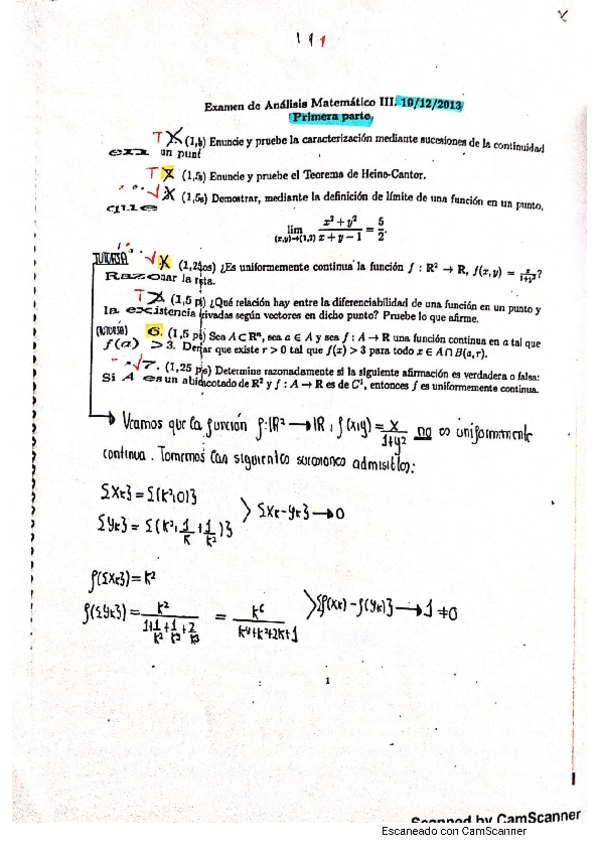 Examen de Análisis Matemático III. 10/12/2013
Primera parte.
T (1,5) Enuncie y pruebe la caracterización mediante sucesiones de la continuidad
un punt
T (1,5) Enuncie y pruebe el Teorema de Heine-Cantor.
(1,5) Demostrar, mediante la definición de límite de una función en un punto,
que
lim (x,y)→(1,2) x² + y² / x + y − 1 = 5/2.
TUTORÍA (1,25 os) ¿Es uniformemente continua la función f : R² → R, f(x,y) = x/1+y²?
Razonar la ta.
T (1,5 p) ¿Qué relación hay entre la diferenciabilidad de una función en un punto y
la existencia rivadas según vectores en dicho punto? Pruebe lo que afirme.
(TUTORÍA) 6. (1,5 p) Sea A ⊂ Rⁿ, sea a ∈ A y sea f : A → R una función continua en a tal que
f(a) > 3. De ar que existe r > 0 tal que f(x) > 3 para todo x ∈ A ∩ B(a, r).
7. (1,25 p) Determine razonadamente si la siguiente afirmación es verdadera o falsa:
Si A es un abi acotado de R² y f : A → R es de C¹, entonces f es uniformemente continua.
Veamos que la función f: R² → R, f(x,y) = x/1+y² no es uniformemente
continua. Tomemos las siguientes sucesiones admisibles:
{Xk} = {(k², 0)}
{Yk} = {(k², 1/k + 1/k²)}
{Xk - Yk} → 0
f({Xk}) = k²
f({Yk}) = k² / 1 + 1/k² + 1/k⁴ + 2/k³ = k⁶ / k⁴ + k² + 2k + 1
{f(Xk) - f(Yk)} → 1 ≠ 0
1
Scanned by CamScanner
Escaneado con CamScanner